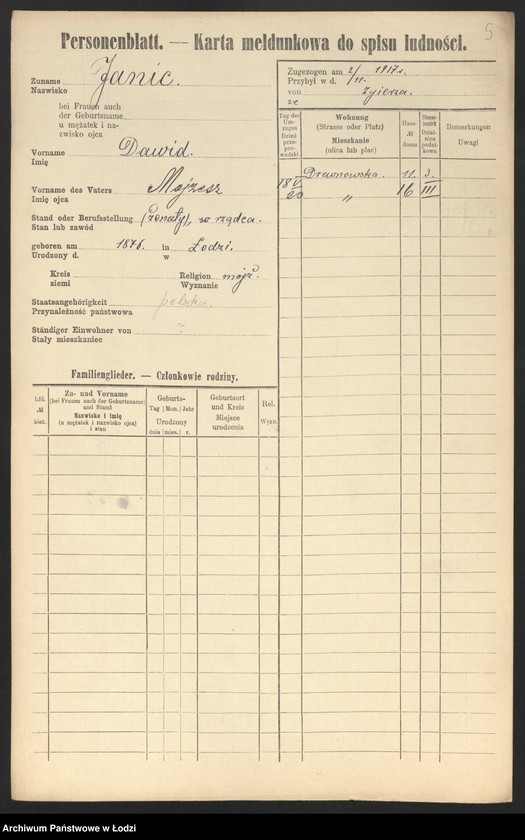 5
Personenblatt. — Karta meldunkowa do spisu ludności.
Zuname Janic.
Nazwisko
bei Frauen auch
der Geburtsname
u mężatek i na-
zwisko ojca
Vorname Dawid.
Imię
Vorname des Vaters Mojżesz
Imię ojca
Stand oder Berufsstellung (żonaty), rządca.
Stan lub zawód
geboren am 1876. in Łodzi.
Urodzony d. w
Kreis Religion mojż.
ziemi Wyznanie
Staatsangehörigkeit polska.
Przynależność państwowa
Ständiger Einwohner von ?
Stały mieszkaniec
Zugezogen am 2/11. 1917 r.
Przybył w d.
von Zgierza.
ze
Tag des
Um-
zuges
Dzień
prze-
pro-
wadzki
Wohnung
(Strasse oder Platz)
Mieszkanie
(ulica lub plac)
Haus-
№
domu
Steuer-
bezirk
Dziel-
nica
podat-
kowa
Bemerkungen
Uwagi
Drewnowska. 11. 3.
18 V 20 " 16 III
Familienglieder. — Członkowie rodziny.
Lfd.
№
bież.
Zu- und Vorname
(bei Frauen auch der Geburtsname)
und Stand
Nazwisko i imię
(u mężatek i nazwisko ojca)
i stan
Geburts-
Tag Mon. Jahr
Urodzony
dnia mies. r.
Geburtsort
und Kreis
Miejsce
urodzenia
Rel.
Wyzn.
Archiwum Państwowe w Łodzi